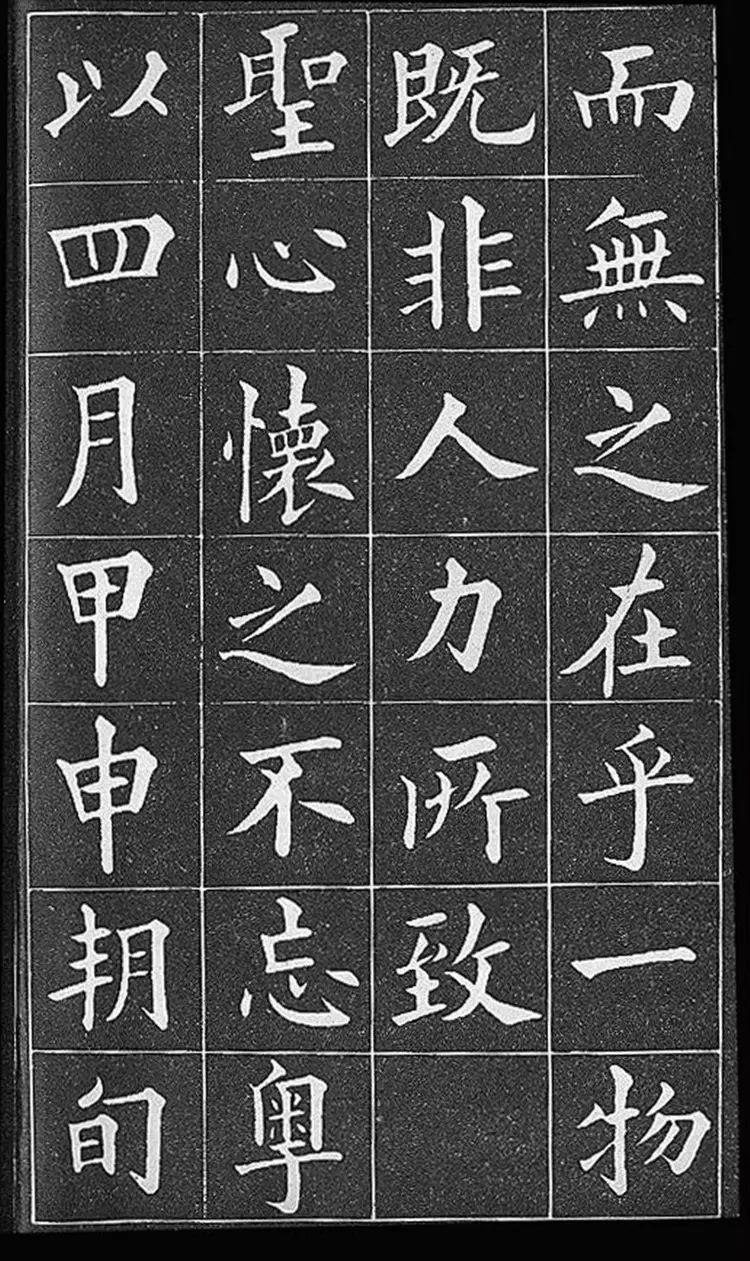 而無之在乎一物
既非人力所致
聖心懷之不忘粵
以四月甲申朔旬